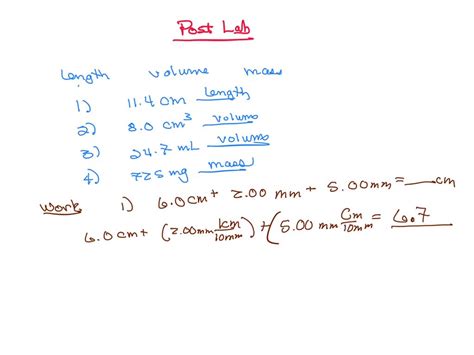 Post Lab
Length volume mass
1) 11.4 cm length
2) 8.0 cm³ volume
3) 24.7 mL volume
4) 725 mg mass
Work 1) 6.0 cm + 2.00 mm + 5.00 mm = ___ cm
6.0 cm + (2.00 mm 1cm/10mm) + (5.00 mm cm/10mm = 6.7